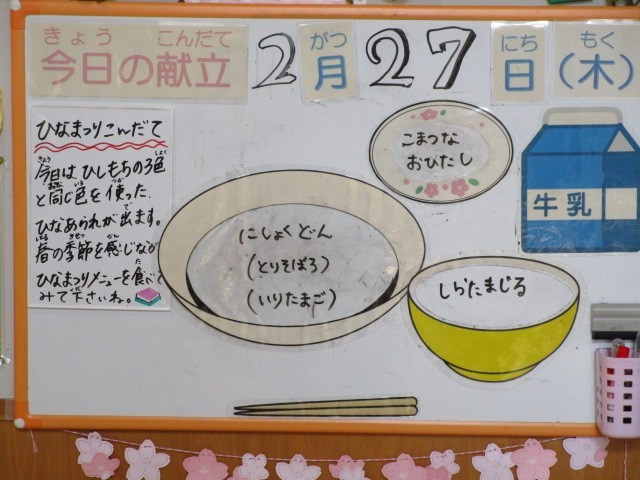 きょう こんだて
今日の献立
2 月 27 日 (木)
がつ にち もく
ひなまつりこんだて
今日は、ひしもちの3色
と同じ色を使った、
ひなあられが出ます。
春の季節を感じなが
ひなまつりメニューを食べて
みて下さいね。
こまつな
おひたし
牛乳
にしょくどん
(とりそぼろ)
(いりたまご)
しらたまじる